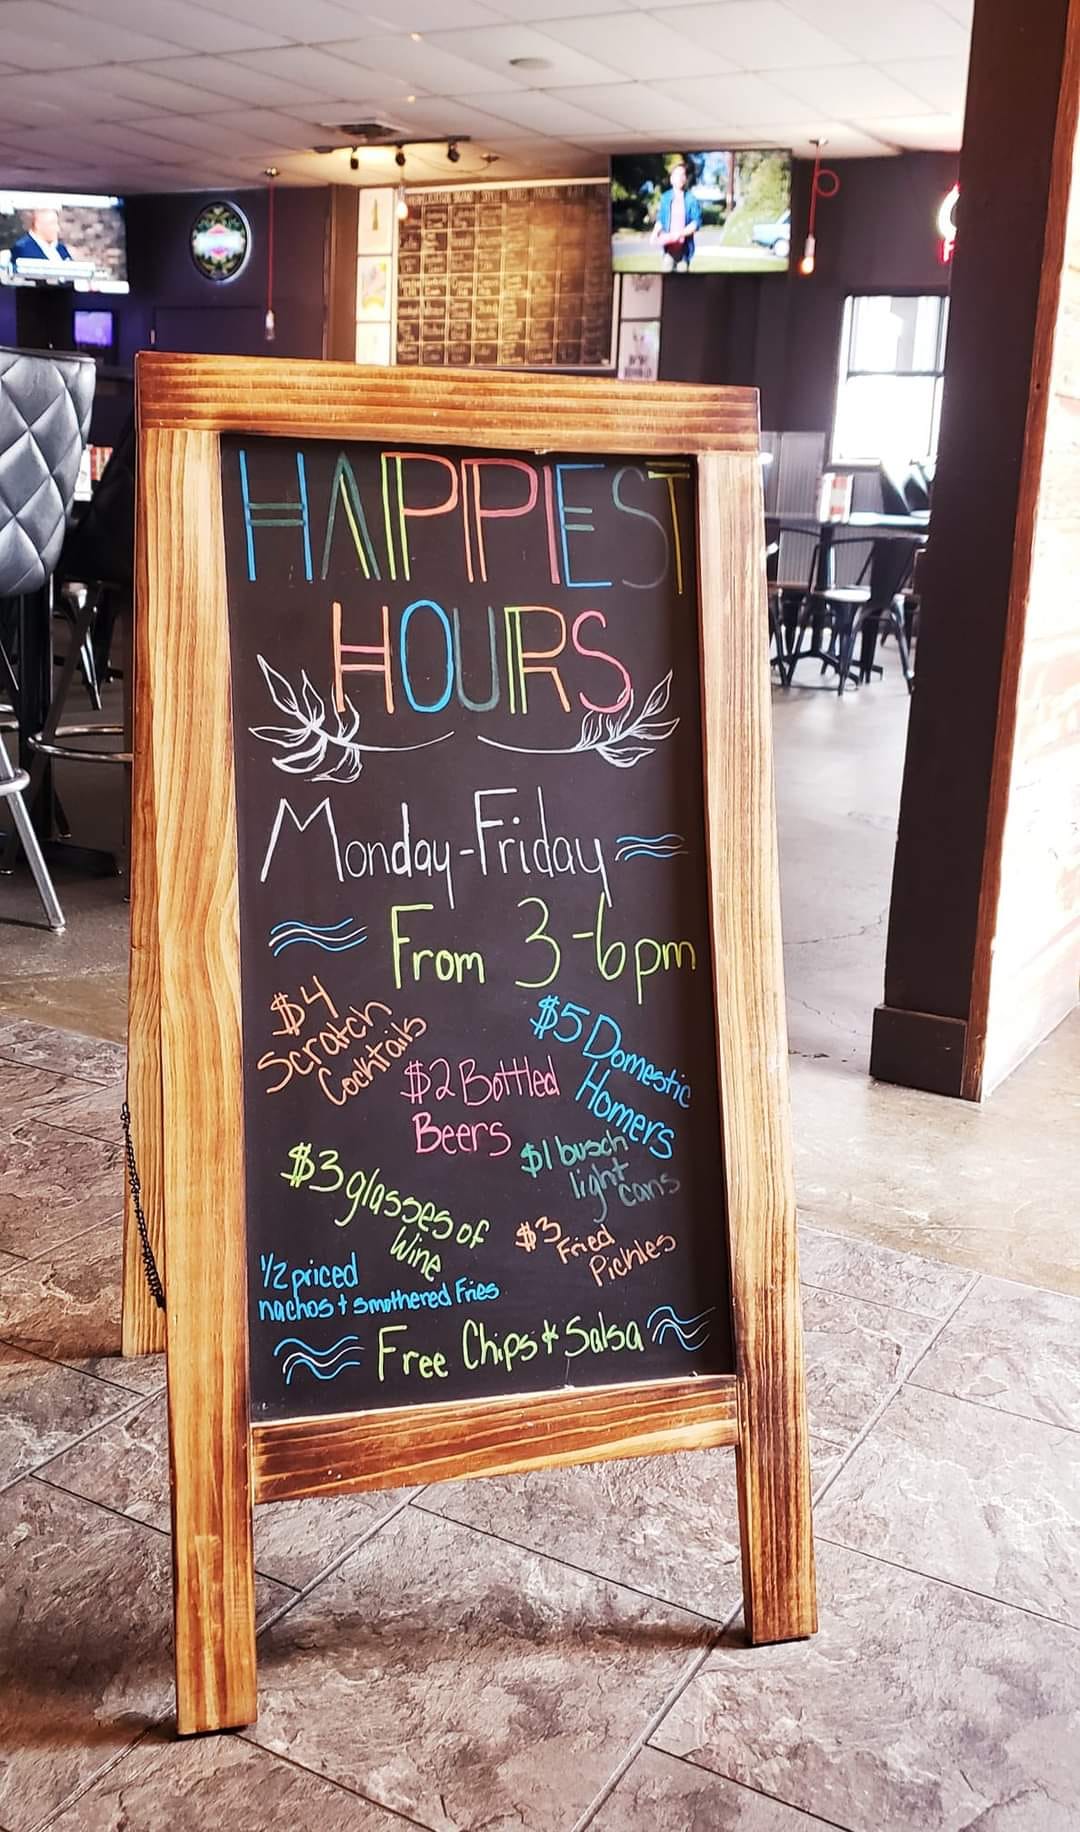 HAPPIEST
HOURS
Monday-Friday
From 3-6pm
$4
Scratch
Cocktails
$5 Domestic
Homers
$2 Bottled
Beers
$1 busch
light
cans
$3 glasses of
Wine
$3
Fried
Pickles
1/2 priced
nachos + smothered Fries
Free Chips & Salsa